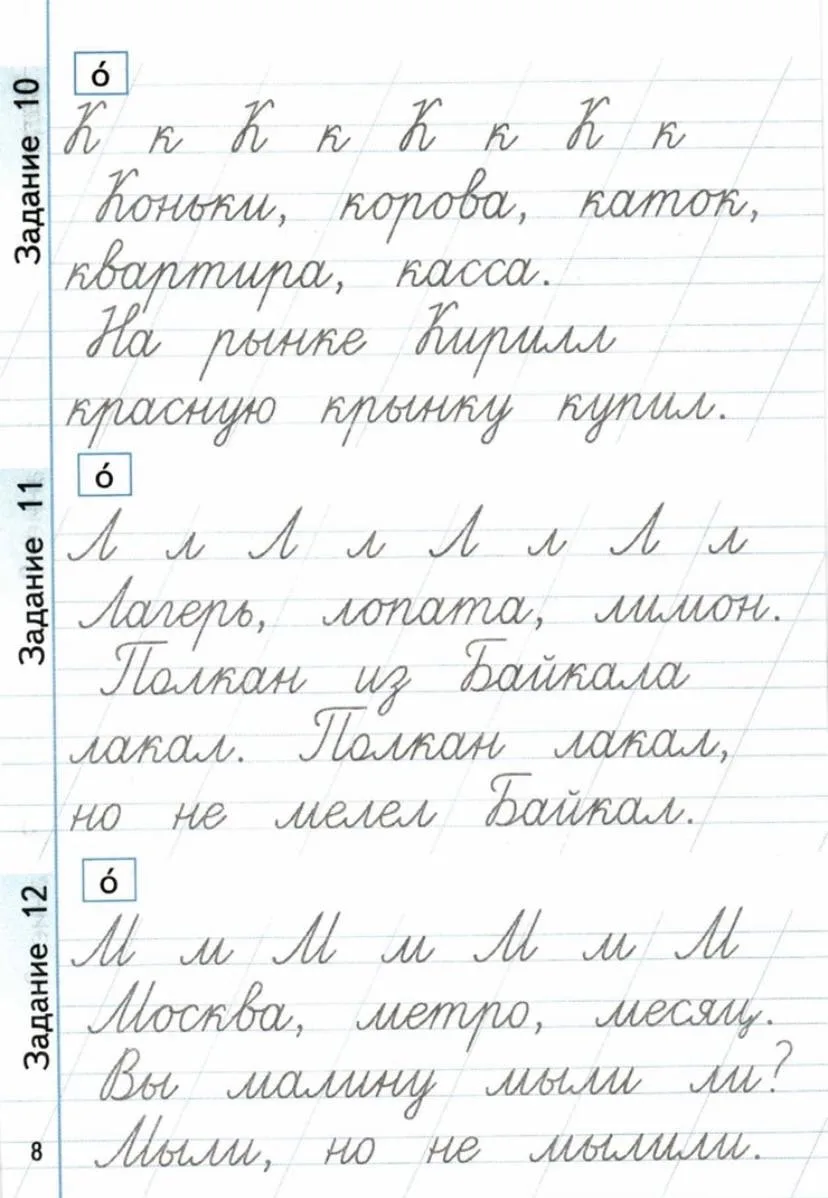 Задание 10
ó
К к К к К к К к
Коньки, корова, каток,
квартира, касса.
На рынке Кирилл
красную крынку купил.
Задание 11
ó
Л л Л л Л л Л л
Лагерь, лопата, лимон.
Полкан из Байкала
лакал. Полкан лакал,
но не мелел Байкал.
Задание 12
ó
М м М м М м М
Москва, метро, месяц.
Вы малину мыли ли?
Мыли, но не мылили.
8